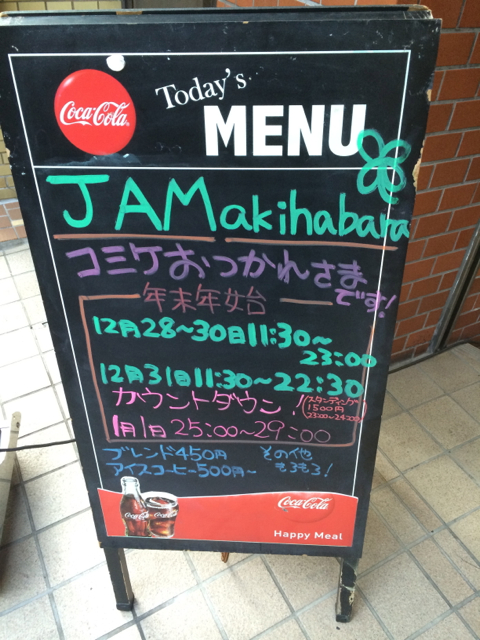 Coca-Cola
Today's
MENU
JAM akihabara
コミケおつかれさま
です!
年末年始
12月28~30日11:30~
23:00
12月31日11:30~22:30
カウントダウン!
スタンディング
1500円
23:00~24:00
1月1日25:00~29:00
ブレンド450円
アイスコーヒー500円~
その他
もろもろ!
Coca-Cola
Happy Meal